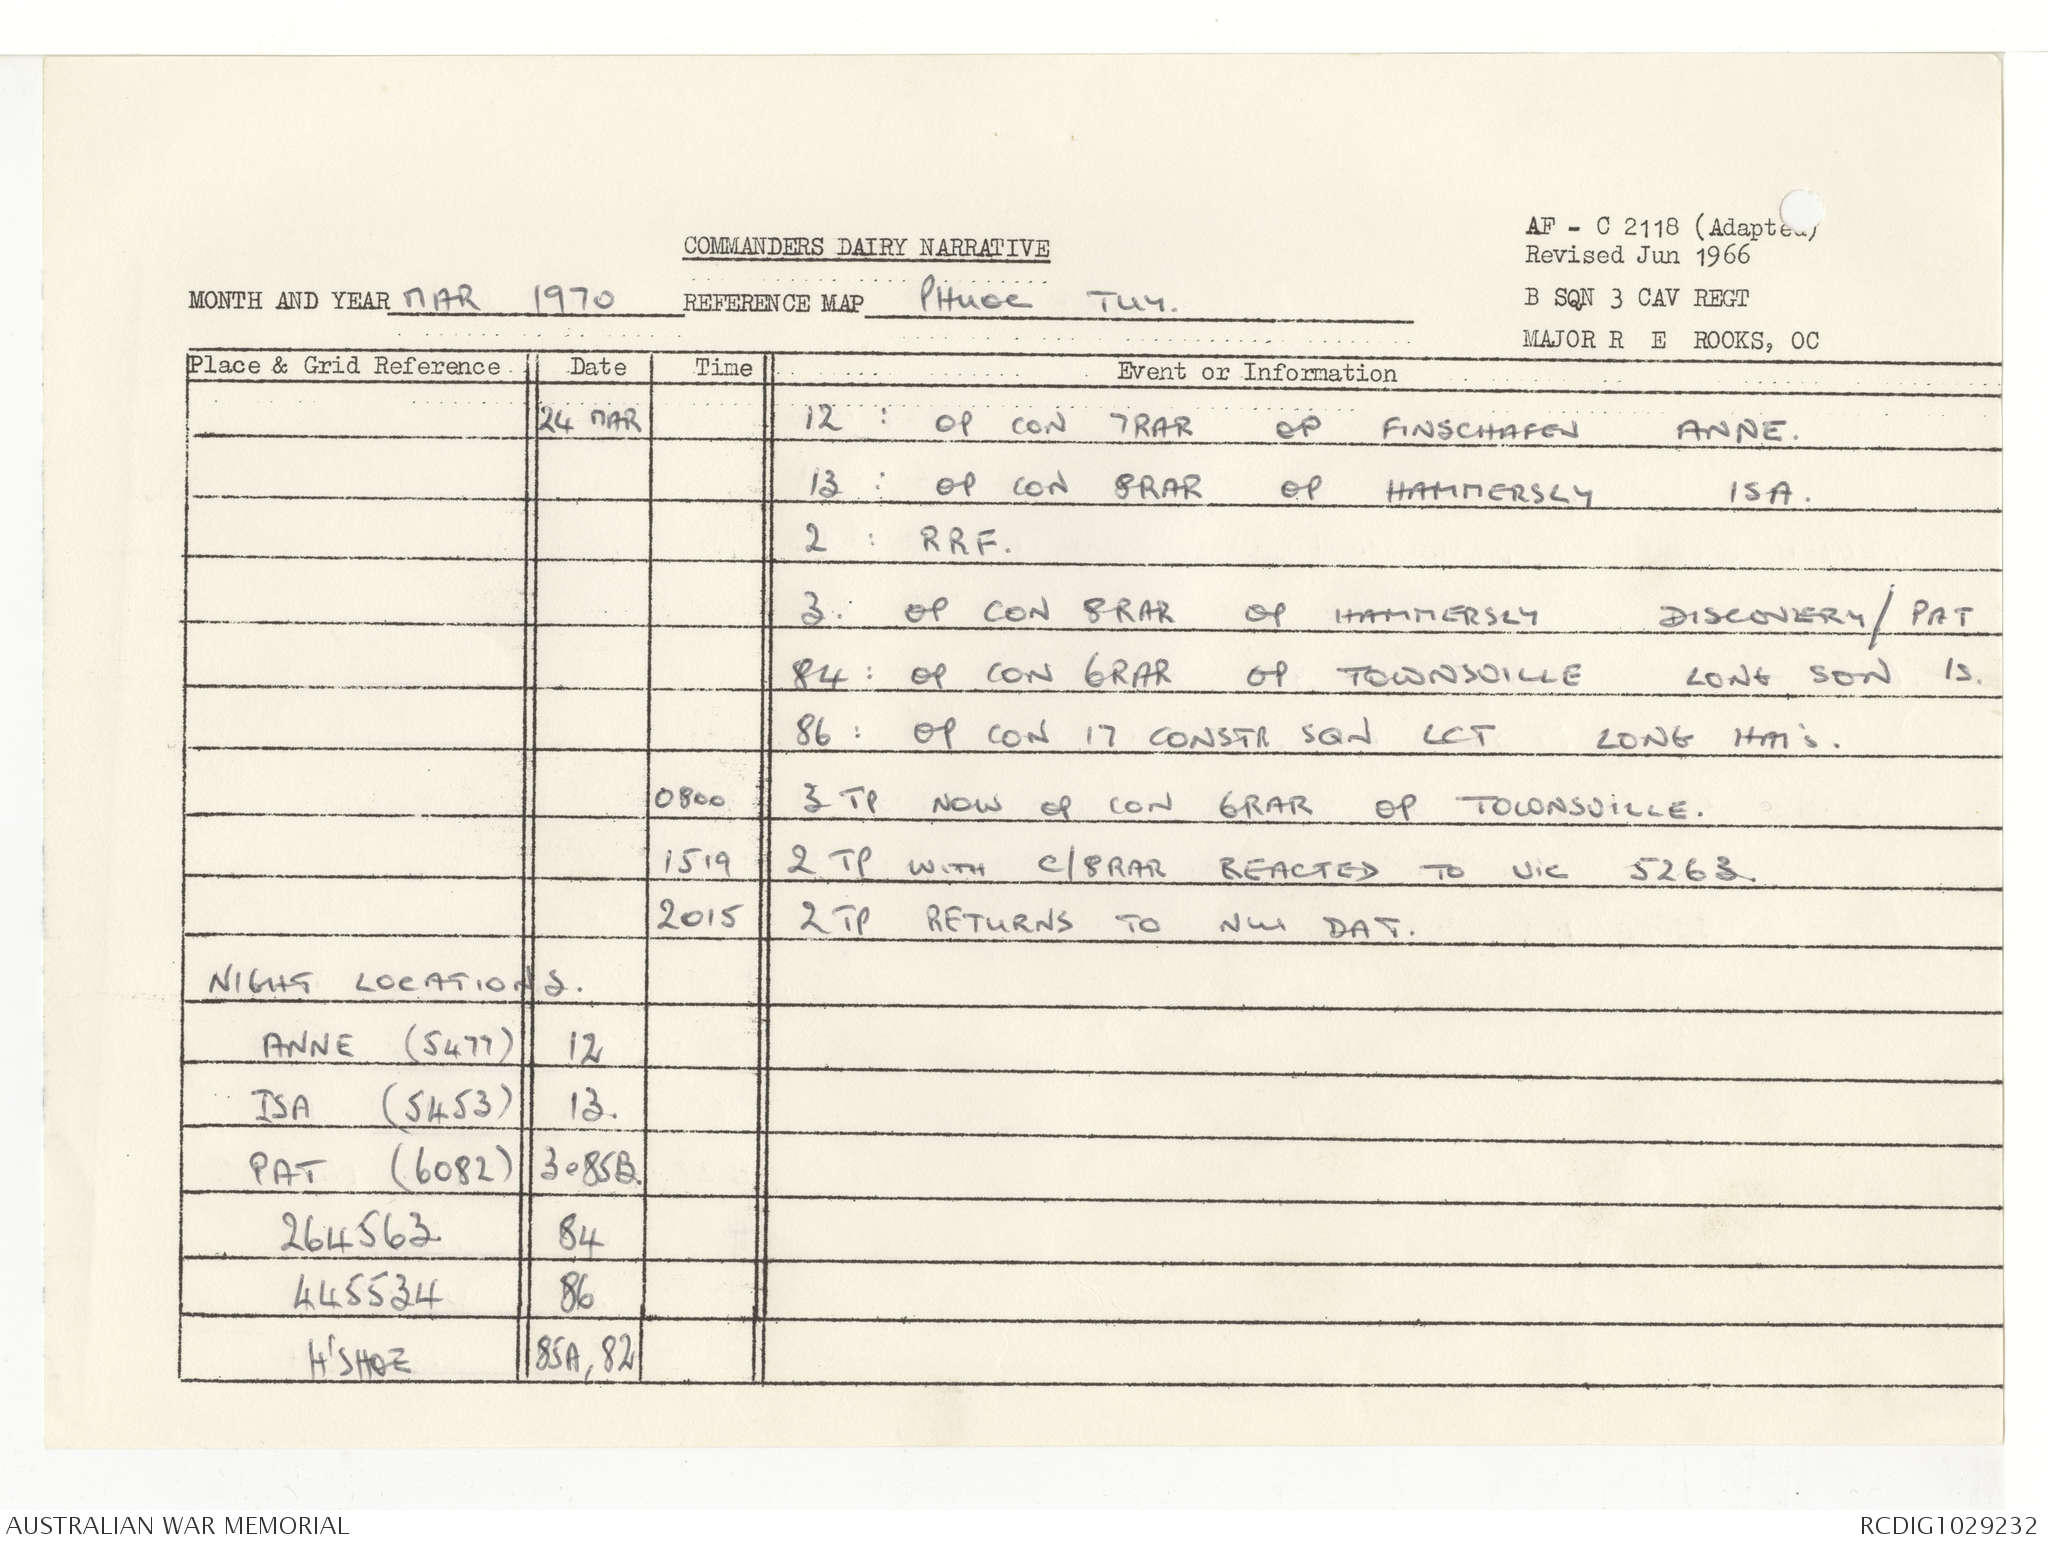 COMMANDERS DAIRY NARRATIVE
AF - C 2118 (Adapted)
Revised Jun 1966
B SQN 3 CAV REGT
MAJOR R E ROOKS, OC
MONTH AND YEAR MAR 1970 REFERENCE MAP PHUOC TUY.
Place & Grid Reference Date Time Event or Information
24 MAR 12 : OP CON 7RAR OP FINSCHAFEN ANNE.
13 : OP CON 8RAR OP HAMMERSLY ISA.
2 : RRF.
3: OP CON 8RAR OP HAMMERSLY DISCOVERY/PAT
84: OP CON 6RAR OP TOWNSVILLE LONG SON IS.
86: OP CON 17 CONSTR SQN LCT LONG HAI'S.
0800 3 TP NOW OP CON 6RAR OP TOWNSVILLE.
1519 2 TP WITH C/8RAR REACTED TO VIC 5263.
2015 2 TP RETURNS TO NUI DAT.
NIGHT LOCATIONS.
ANNE (5477) 12
ISA (5453) 13.
PAT (6082) 3 85B.
264563 84
445534 86
H'SHOE 85A, 82
AUSTRALIAN WAR MEMORIAL
RCDIG1029232